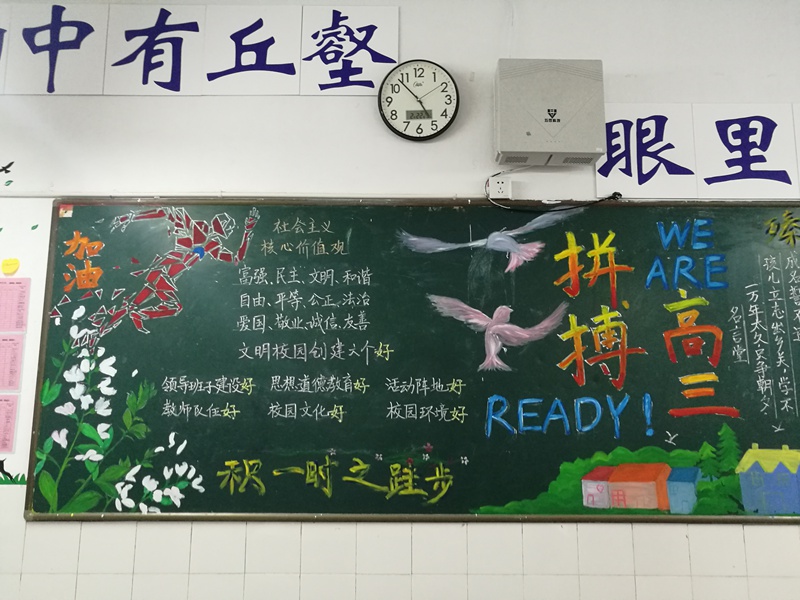 中有丘壑
眼里
加油
社会主义
核心价值观
富强、民主、文明、和谐
自由、平等、公正、法治
爱国、敬业、诚信、友善
文明校园创建六个好
领导班子建设好 思想道德教育好 活动阵地好
教师队伍好 校园文化好 校园环境好
积一时之跬步
拼搏
高三
WE
ARE
READY!
孩儿立志出乡关,学不
一万年太久只争朝夕
名言堂